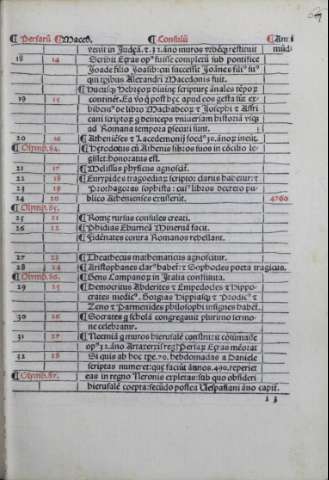 ¶ Persarū ¶ Maced. ¶ Consulū ¶ Anni mūdi
venit in Judeā. ⁊ 12. āno muros vrbēq; restituit
18 14 Scribit Esras opꝰ fuisse completū sub pontifice
Joade filio Joasib: cui successit Joānes filiꝰ
quī tpibus Alexandri Macedonis fuit.
¶ Hucusq; Hebreoꝝ diuinę scripturę ānales tēpoꝝ
19 15 continēt. Ea vo q̄ post hęc apud eos gesta sūt ex
bibem9 de libro Machabeoꝝ ⁊ Josephi ⁊ Affri
cani scriptoꝝ q deinceps vniuersam historiā vsq;
ad Romana tempora psecuti sunt.
20 16 ¶ Athenieses ⁊ Lacedemonij foed9 30. ānoꝝ ineūt.
¶ Olymp. 84. ¶ Herodotus cū Athenis libros suos in cōcilio le
gisset: honoratus est.
21 17 ¶ Melissus physicus agnoscit.
22 18 ¶ Eurypides tragoediaꝝ scriptor clarus habetur: ⁊
23 19 Prothagoras sophista: cui9 libros decreto pu
24 20 blico Athenienses exusserūt. 4760
¶ Olymp. 85.
25 21 ¶ Romę rursus consules creati.
26 22 ¶ Phidias Eburneā Mineruā facit.
¶ Fidēnates contra Romanos rebellant.
27 23 ¶ Theathecus mathematicus agnoscitur.
28 24 ¶ Aristophanes clar9 habet: ⁊ Sophocles poeta tragicus.
¶ Olymp. 86. ¶ Seno Campanoꝝ in Italia constituta.
29 25 ¶ Democritus Abderites ⁊ Empedocles ⁊ Hippo
crates medic9. Gorgias Hippiasq; ⁊ Prodic9 ⁊
Zeno ⁊ Parmenides philosophi insignes habēt.
30 26 ¶ Socrates q scholā congregauit plurimo sermo
ne celebratur.
31 27 ¶ Neemiā q muros hierusalē construxit cōūmasse
op9 32. āno Artaxerxis reg9 Persaꝝ Esras mēorat
32 28 Si quis ab hoc tpe. 70. hebdomadas a Daniele
scriptas numeret: que faciūt ānnos. 490. reperiet
¶ Olymp. 87. eas in regno Neronis expletas: sub quo obsideri
hierusalē coepta: secūdo postea Uespasiani āno capit.